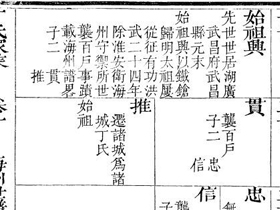 始祖興
先世世居湖廣
武昌府武昌
縣元末
始祖興以鐵鎗
歸明太祖屢
從征有功洪
武二十四年
除淮安衛海
州守禦所世
襲百戶事蹟
載海州誌畧
子二 貫
推
貫
襲百戶
子二 忠
信
推
遷諸城為諸
城丁氏
始祖
忠
信
無
氏家乘 卷
海州世